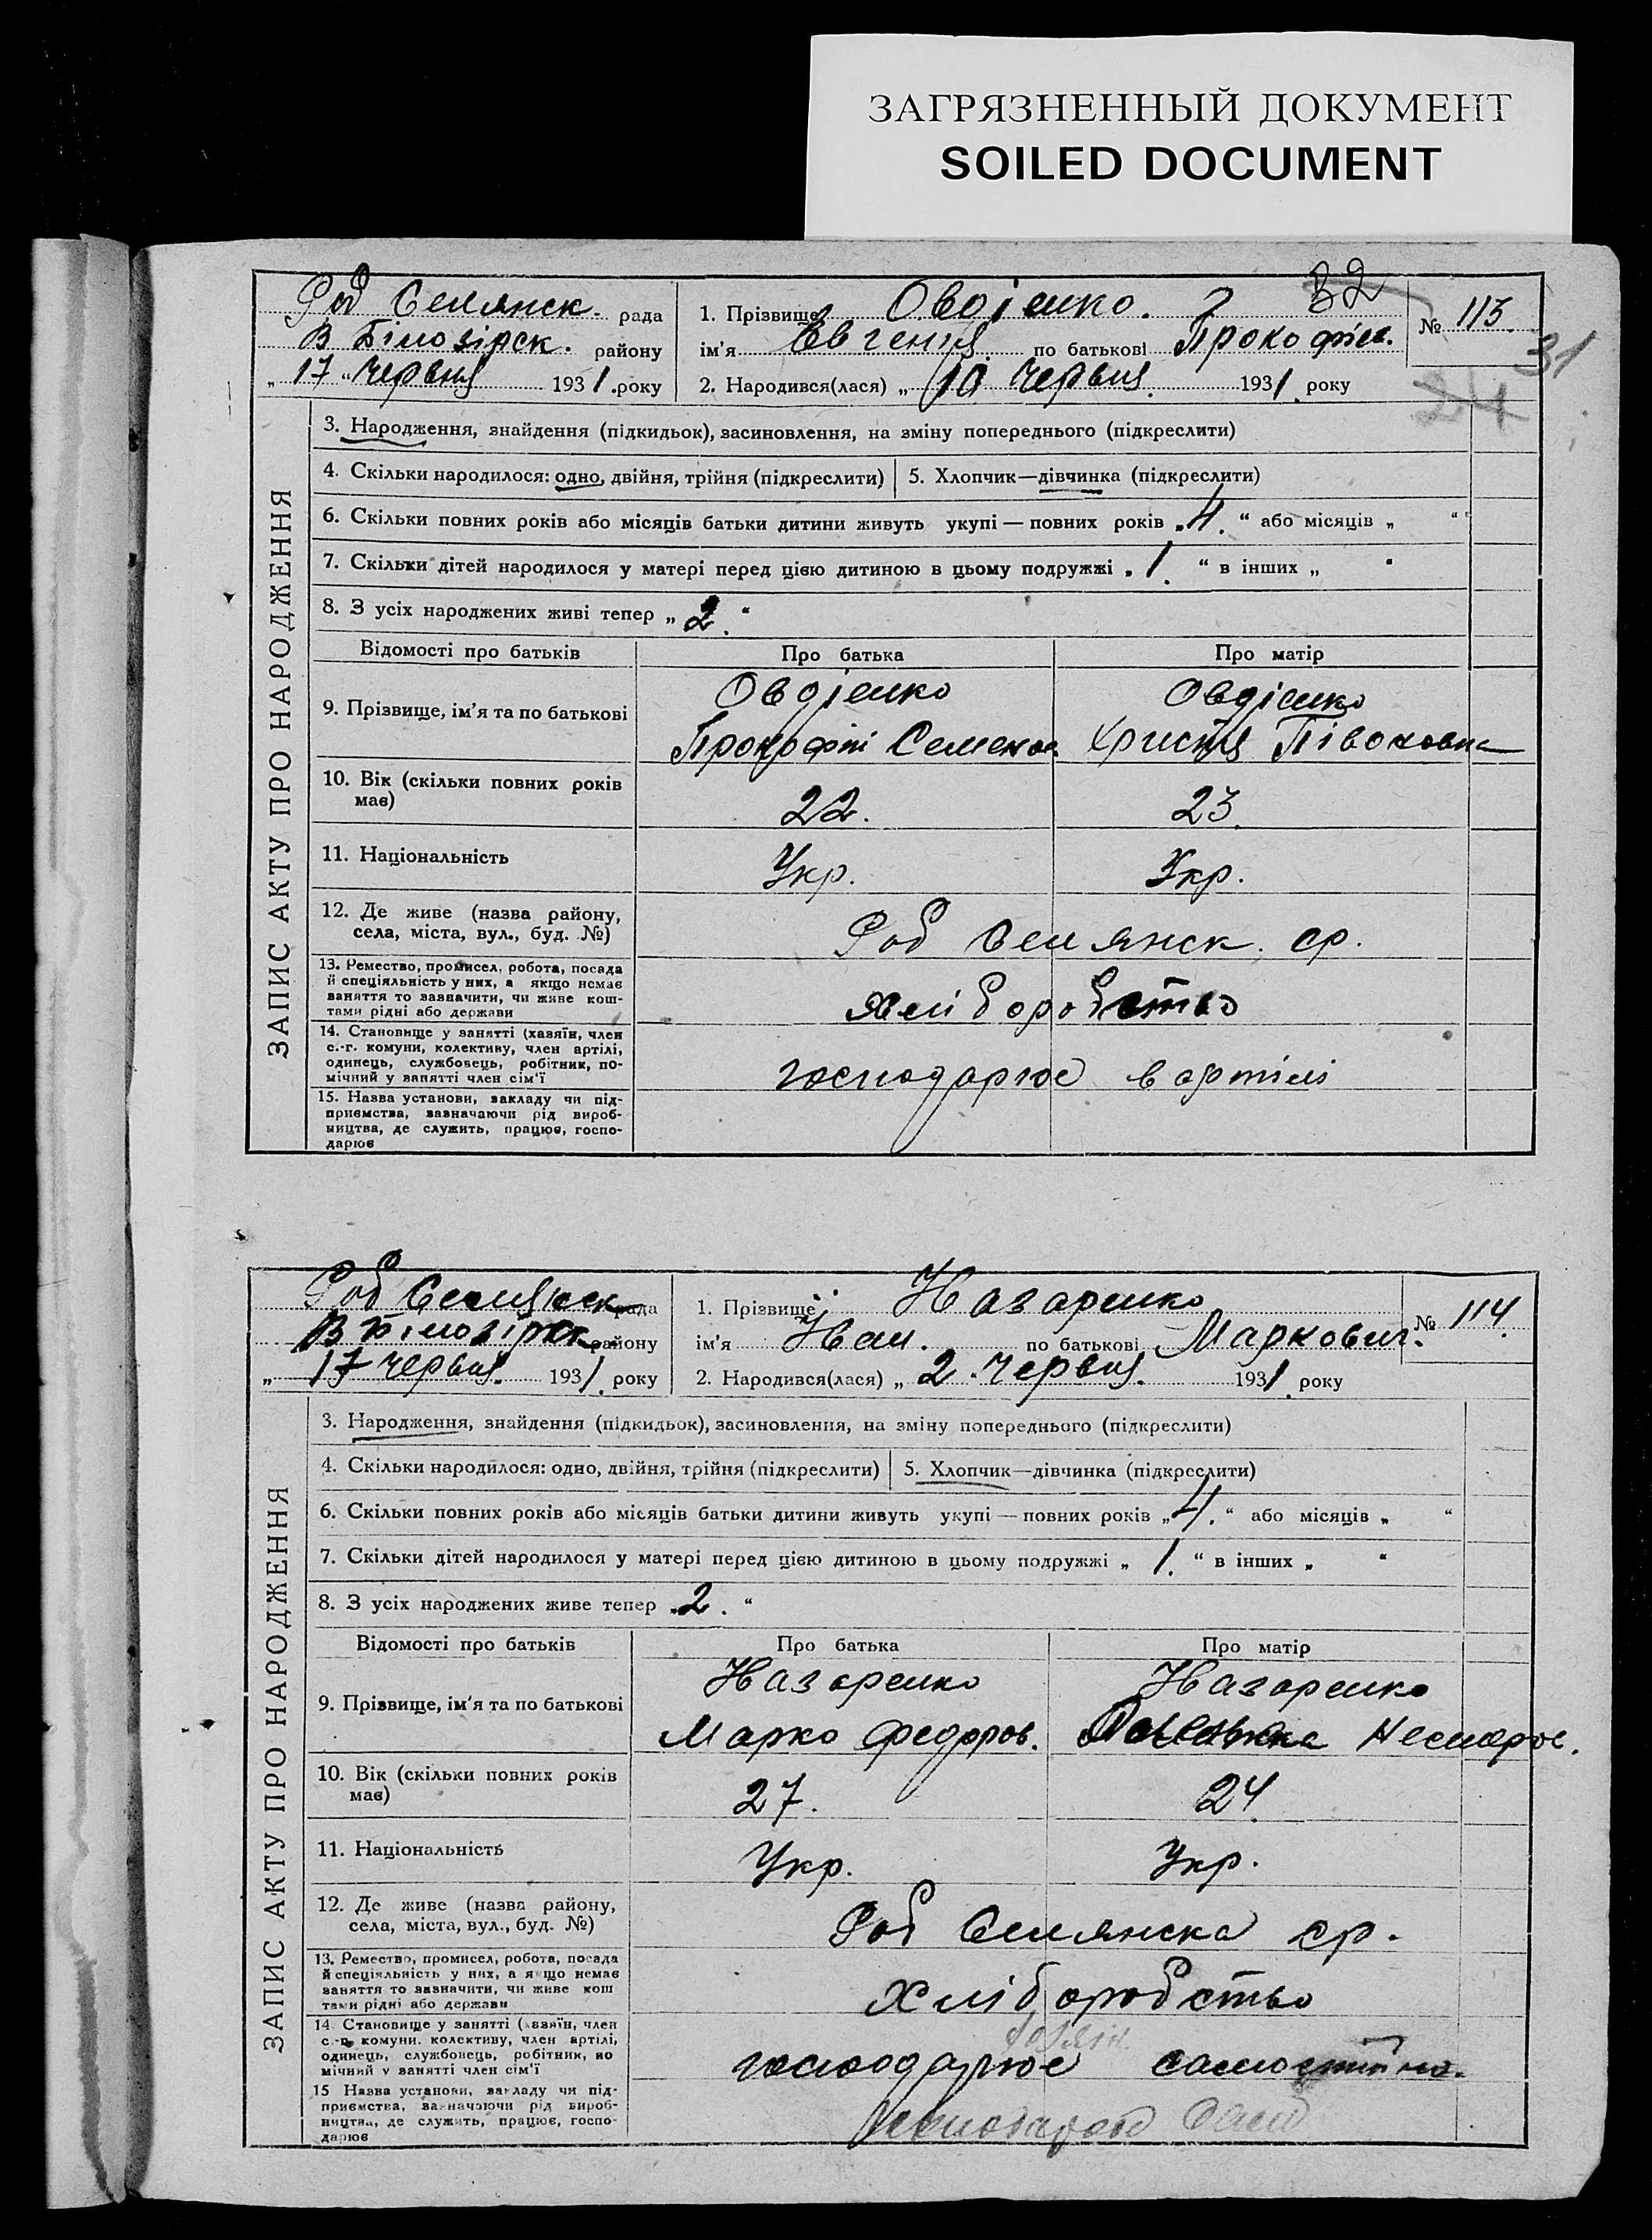 ЗАГРЯЗНЕННЫЙ ДОКУМЕНТ
SOILED DOCUMENT
32
Роб Селянск. рада
В Білозірск. району
„ 17 “ Червня 1931. року
1. Прізвище Овдіенко.
ім'я Евгенія. по батькові Прокофіев.
2. Народився(лася) „ 10 Червня. 1931. року
№ 113.
31
ЗАПИС АКТУ ПРО НАРОДЖЕННЯ
3. Народження, знайдення (підкидьок), засиновлення, на зміну попереднього (підкреслити)
4. Скільки народилося: одно, двійня, трійня (підкреслити) 5. Хлопчик—дівчинка (підкреслити)
6. Скільки повних років або місяців батьки дитини живуть укупі — повних років „ 4. “ або місяців „ “
7. Скільки дітей народилося у матері перед цією дитиною в цьому подружжі „ 1. “ в інших „ “
8. З усіх народжених живі тепер „ 2. “
Відомості про батьків Про батька Про матір
9. Прізвище, ім'я та по батькові
Овдіенко Овдіенко
Прокофій Семенов Христя
10. Вік (скільки повних років
має)
22. 23.
11. Національність Укр. Укр.
12. Де живе (назва району,
села, міста, вул., буд. №)
Роб Селянск. ср.
13. Ремество, промисел, робота, посада
й спеціяльність у них, а якщо немає
заняття то зазначити, чи живе кош-
тами рідні або держави
хліборобство
14. Становище у занятті (хазяїн, член
с.-г. комуни, колективу, член артілі,
одинець, службовець, робітник, по-
мічний у занятті член сім'ї
господарює в артілі
15. Назва установи, закладу чи під-
приємства, зазначаючи рід вироб-
ництва, де служить, працює, госпо-
дарює
Роб Селянск рада
В Білозірск. району
„ 17 Червня. 1931. року
1. Прізвище Назаренко
ім'я Іван. по батькові Маркович.
2. Народився(лася) „ 2. Червня. 1931. року
№ 114.
ЗАПИС АКТУ ПРО НАРОДЖЕННЯ
3. Народження, знайдення (підкидьок), засиновлення, на зміну попереднього (підкреслити)
4. Скільки народилося: одно, двійня, трійня (підкреслити) 5. Хлопчик—дівчинка (підкреслити)
6. Скільки повних років або місяців батьки дитини живуть укупі — повних років „ 4. “ або місяців „ “
7. Скільки дітей народилося у матері перед цією дитиною в цьому подружжі „ 1. “ в інших „ “
8. З усіх народжених живе тепер „ 2. “
Відомості про батьків Про батька Про матір
9. Прізвище, ім'я та по батькові
Назаренко Назаренко
Марко Федоров.
10. Вік (скільки повних років
має)
27. 24
11. Національність Укр. Укр.
12. Де живе (назва району,
села, міста, вул., буд. №)
Роб Селянска ср.
13. Ремество, промисел, робота, посада
й спеціяльність у них, а якщо немає
заняття то зазначити, чи живе кош
тами рідні або держави
хліборобство
14. Становище у занятті (хазяїн, член
с.-г. комуни. колективу, член артілі,
одинець, службовець, робітник, по
мічний у занятті член сім'ї
господарює самостійно.
15 Назва установи, закладу чи під-
приємства, зазначаючи рід вироб-
ництва, де служить, працює, госпо-
дарює